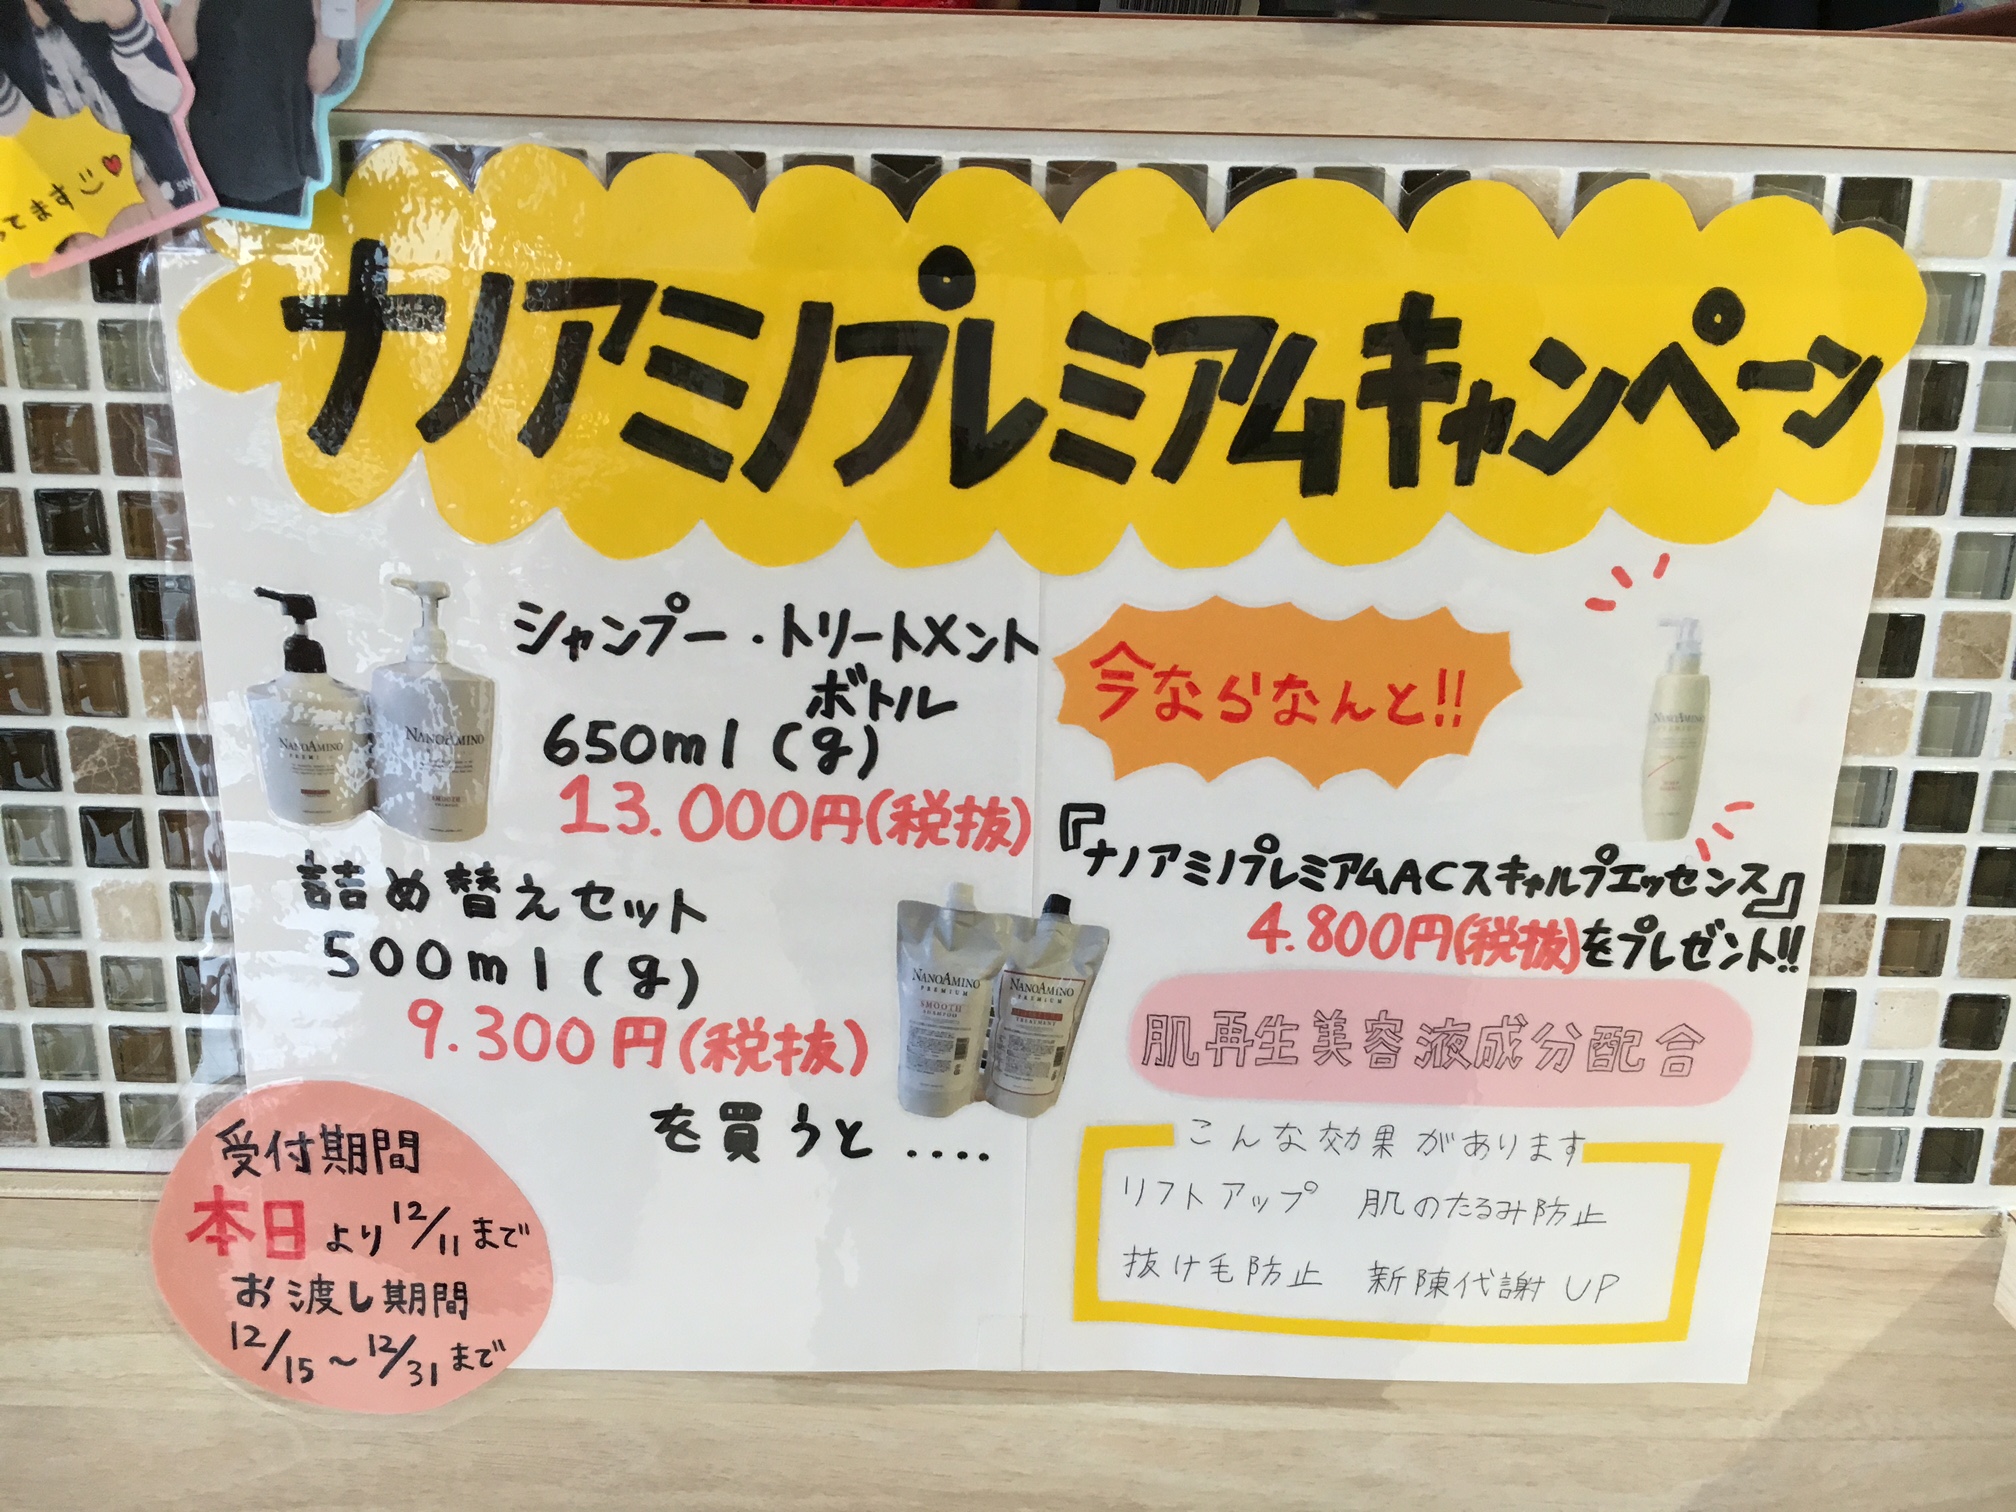 ってます
ナノアミノプレミアムキャンペーン
シャンプー・トリートメント
ボトル
650ml(g)
13.000円(税抜)
詰め替えセット
500ml(g)
9.300円(税抜)
を買うと....
今ならなんと!!
『ナノアミノプレミアムACスキャルプエッセンス』
4.800円(税抜)をプレゼント!!
肌再生美容液成分配合
こんな効果があります
リフトアップ 肌のたるみ防止
抜け毛防止 新陳代謝UP
受付期間
本日より12/11まで
お渡し期間
12/15~12/31まで
NANOAMINO
PREMIUM
NANOAMINO
SMOOTH
NANOAMINO
PREMIUM
SMOOTH
SHAMPOO
NANOAMINO
PREMIUM
TREATMENT
NANOAMINO
PREMIUM